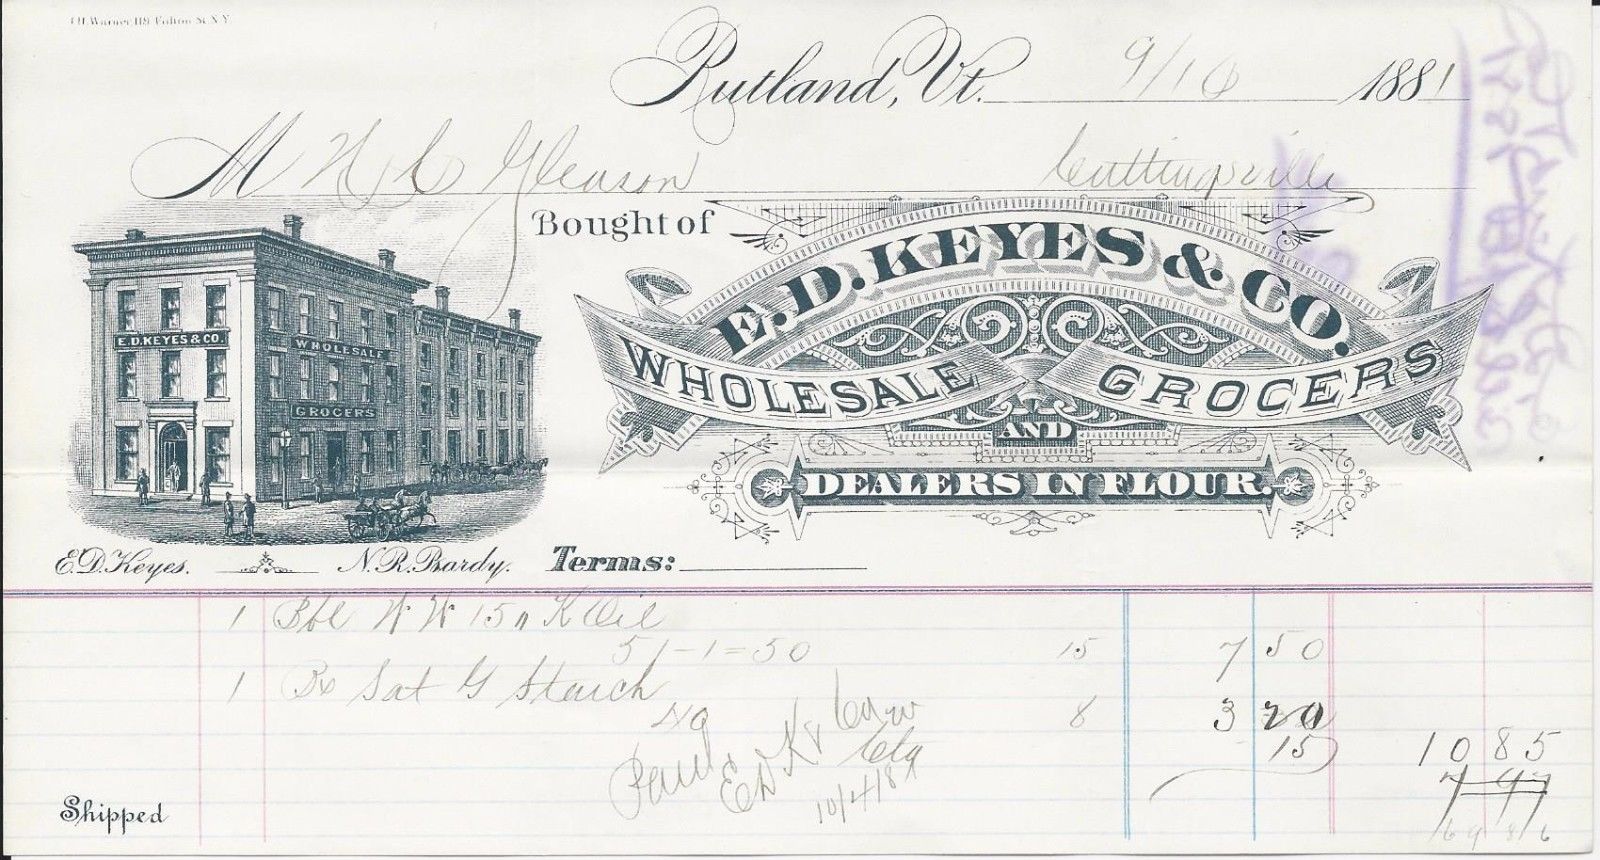 119 Fulton St. N.Y.
Rutland, Vt. 9/10 1881
M N C Gleason Cuttingsville
Bought of
E. D. KEYES & CO.
WHOLESALE GROCERS
AND
DEALERS IN FLOUR.
E. D. KEYES & CO.
WHOLESALE
GROCERS
E. D. Keyes. N. R. Bardy. Terms:
1 Bbl W W 15 K Oil
51-1=50 15 7 50
1 Bx Sat G Starch
40 8 3 20
15 10 85
Paid E D K & Co
10/4/81
Shipped